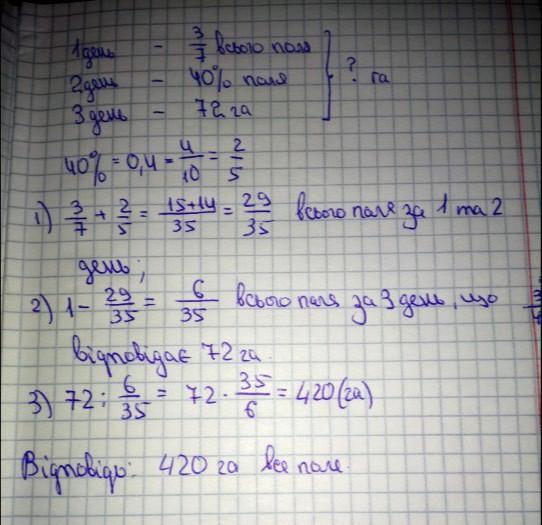 1 день - 3/7 всього поля
2 день - 40% поля } ? га
3 день - 72 га
40% = 0,4 = 4/10 = 2/5
1) 3/7 + 2/5 = 15+14/35 = 29/35 всього поля за 1 та 2
день;
2) 1 - 29/35 = 6/35 всього поля за 3 день, що
відповідає 72 га.
3) 72 : 6/35 = 72 · 35/6 = 420 (га)
Відповідь: 420 га все поле.